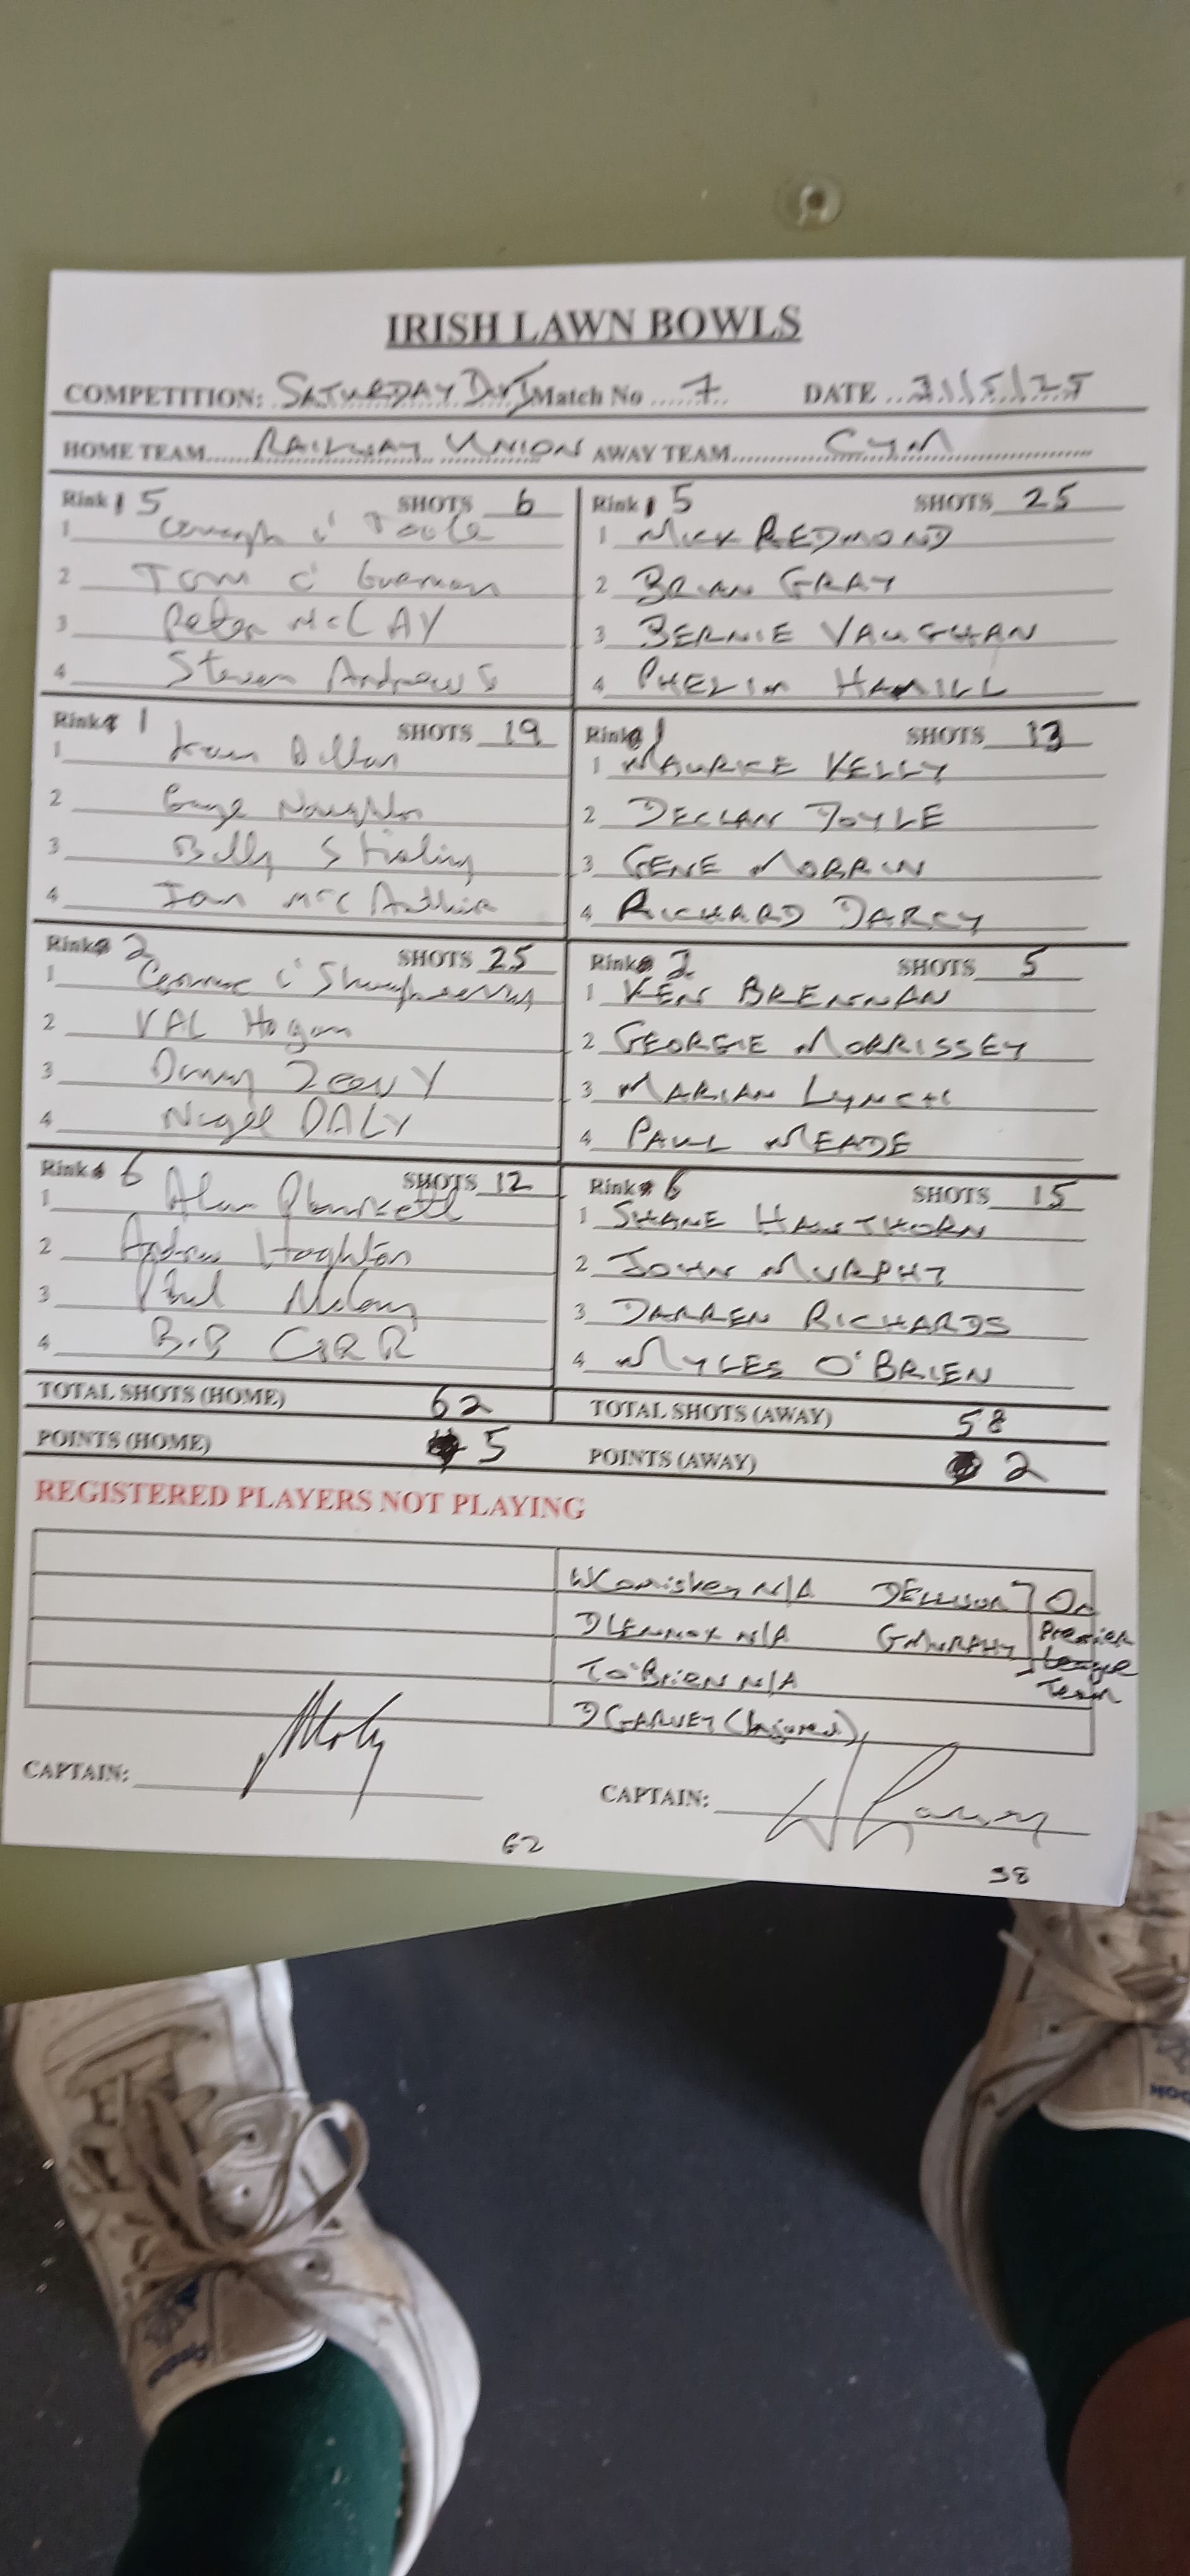 IRISH LAWN BOWLS
COMPETITION: SATURDAY Div 1 Match No 7 DATE 31/5/25
HOME TEAM RAILWAY UNION AWAY TEAM CYM
Rink 5 SHOTS 6
1 O'Toole
2 Tom O'Gorman
3 Peter McCLAY
4 Steven Andrews
Rink 5 SHOTS 25
1 MICK REDMOND
2 BRIAN GRAY
3 BERNIE VAUGHAN
4 PHELIM HAMILL
Rink 1 SHOTS 19
1 Dillon
2 Naughton
3 Billy Stirling
4 Ian McArthur
Rink 1 SHOTS 13
1 KELLY
2 DECLAN DOYLE
3 GENE MORRIN
4 RICHARD DARCY
Rink 2 SHOTS 25
1
2 VAL Hogan
3 Danny
4 Nigel DALY
Rink 2 SHOTS 5
1 KEN BRENNAN
2 GEORGIE MORRISSEY
3 MARIAN LYNCH
4 PAUL MEADE
Rink 6 SHOTS 12
1 Alan Plunkett
2 Andrew Hoghton
3 Paul
4 CARR
Rink 6 SHOTS 15
1 SHANE HAWTHORN
2 JOHN MURPHY
3 DARREN RICHARDS
4 MYLES O'BRIEN
TOTAL SHOTS (HOME) 62 TOTAL SHOTS (AWAY) 58
POINTS (HOME) 5 POINTS (AWAY) 2
REGISTERED PLAYERS NOT PLAYING
W Comiskey N/A D ELLISON On
D LENNOX N/A G MURPHY Premier
T O'Brien N/A League
Team
D GARVEY (Injured)
CAPTAIN: CAPTAIN:
62 58